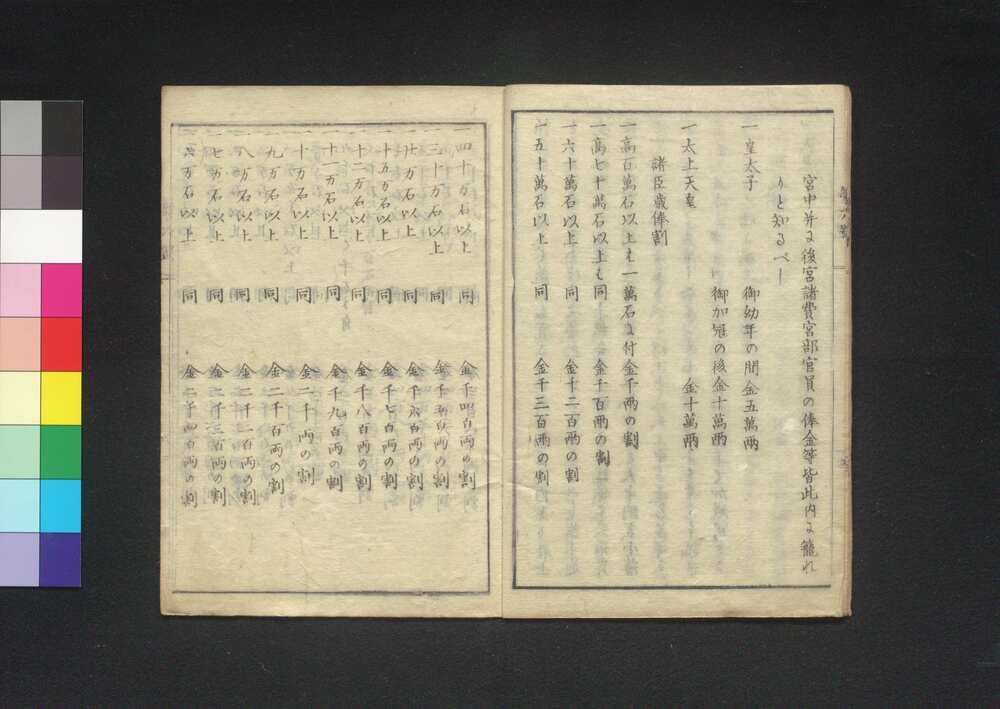 宮中并ニ後宮諸費宮部官員の俸金等皆此内ニ籠れ
りと知るべし
一皇太子 御幼年の間金五萬兩
御加冠の後金十萬兩
一太上天皇 金十萬兩
諸臣歳俸割
一高百萬石以上も一萬石ニ付金千兩の割
一高七十萬石以上も同 金千百兩の割
一六十萬石以上 同 金千二百兩の割
一五十萬石以上 同 金千三百兩の割
一四十万石以上 同 金千四百両の割
一三十万石以上 同 金千五百両の割
万石以上 同 金千六百両の割
一十五万石以上 同 金千七百両の割
一十二万石以上 同 金千八百両の割
一十一万石以上 同 金千九百両の割
一十万石以上 同 金二千両の割
一九万石以上 同 金二千百両の割
一八万石以上 同 金二千百両の割
一七万石以上 同 金二千三百両の割
一六万石以上 同 金二千四百両の割